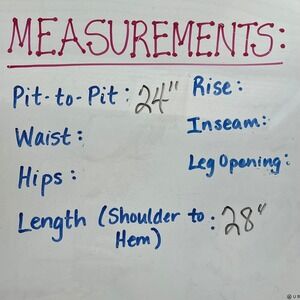 MEASUREMENTS:
Pit-to-Pit: 24"
Rise:
Waist:
Inseam:
Hips:
Leg Opening:
Length (Shoulder to Hem): 28"